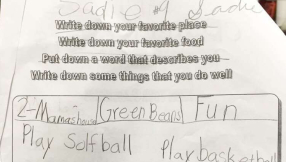 Sadie
Write down your favorite place
Write down your favorite food
Put down a word that describes you
Write down some things that you do well
2-Mamashouse GreenBeans Fun
Play Solfball Play basketball